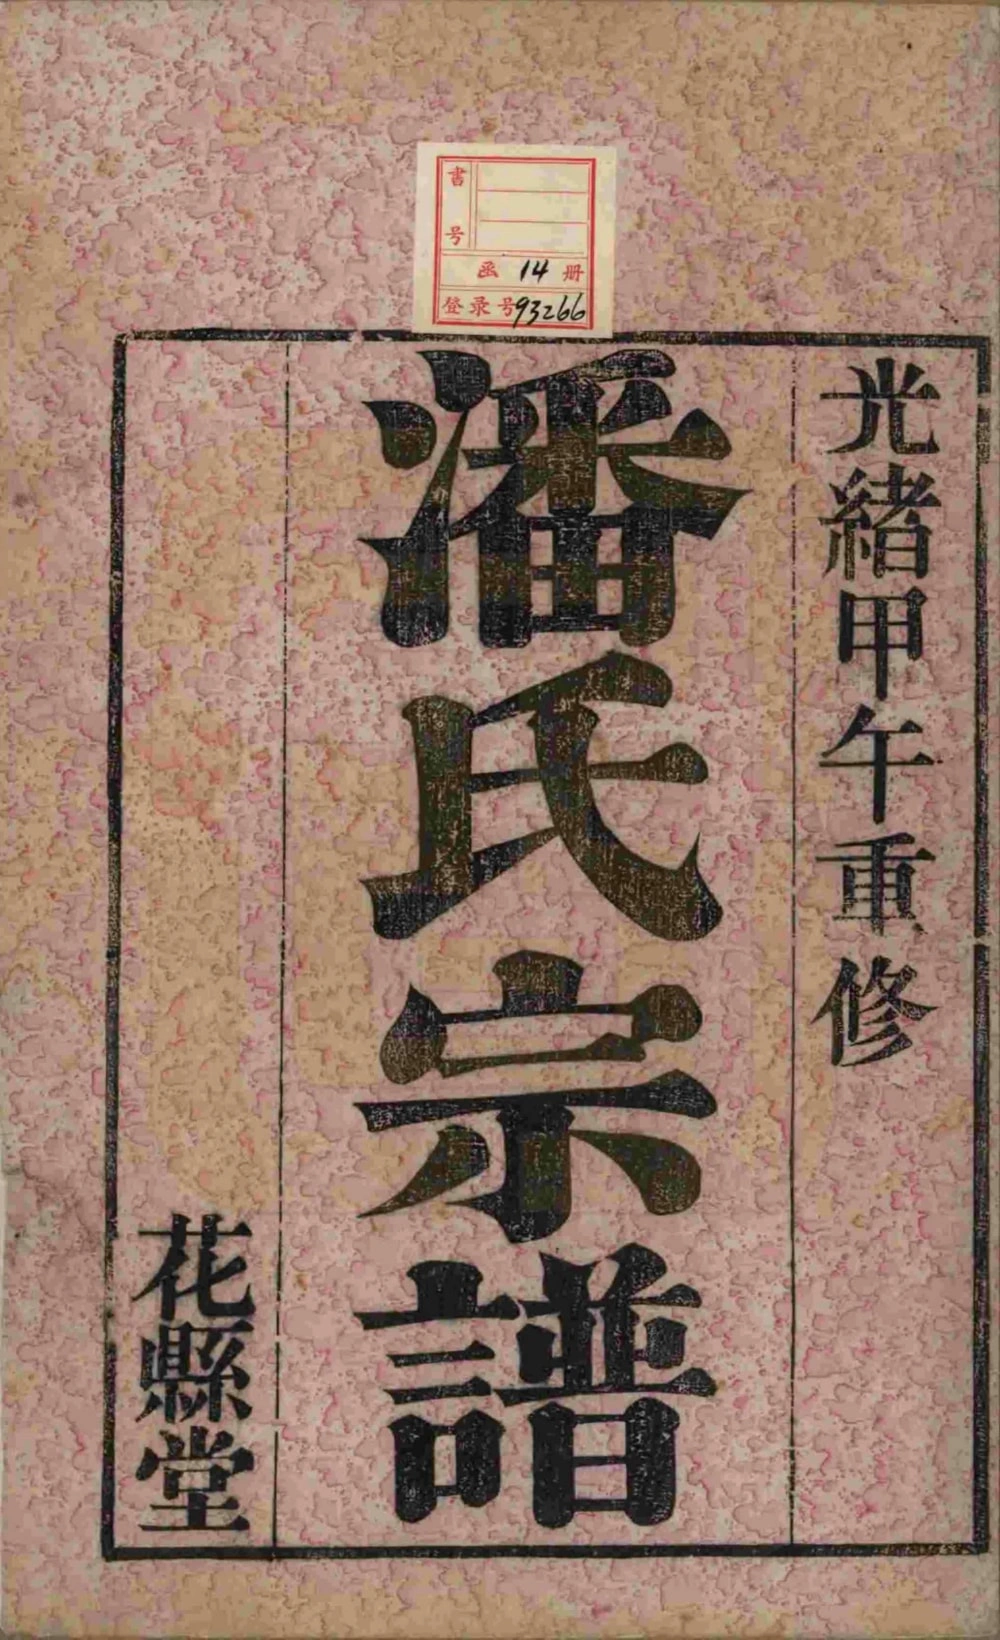 書号
函 14 册
登录号93266
光緒甲午重修
潘氏宗譜
花縣堂